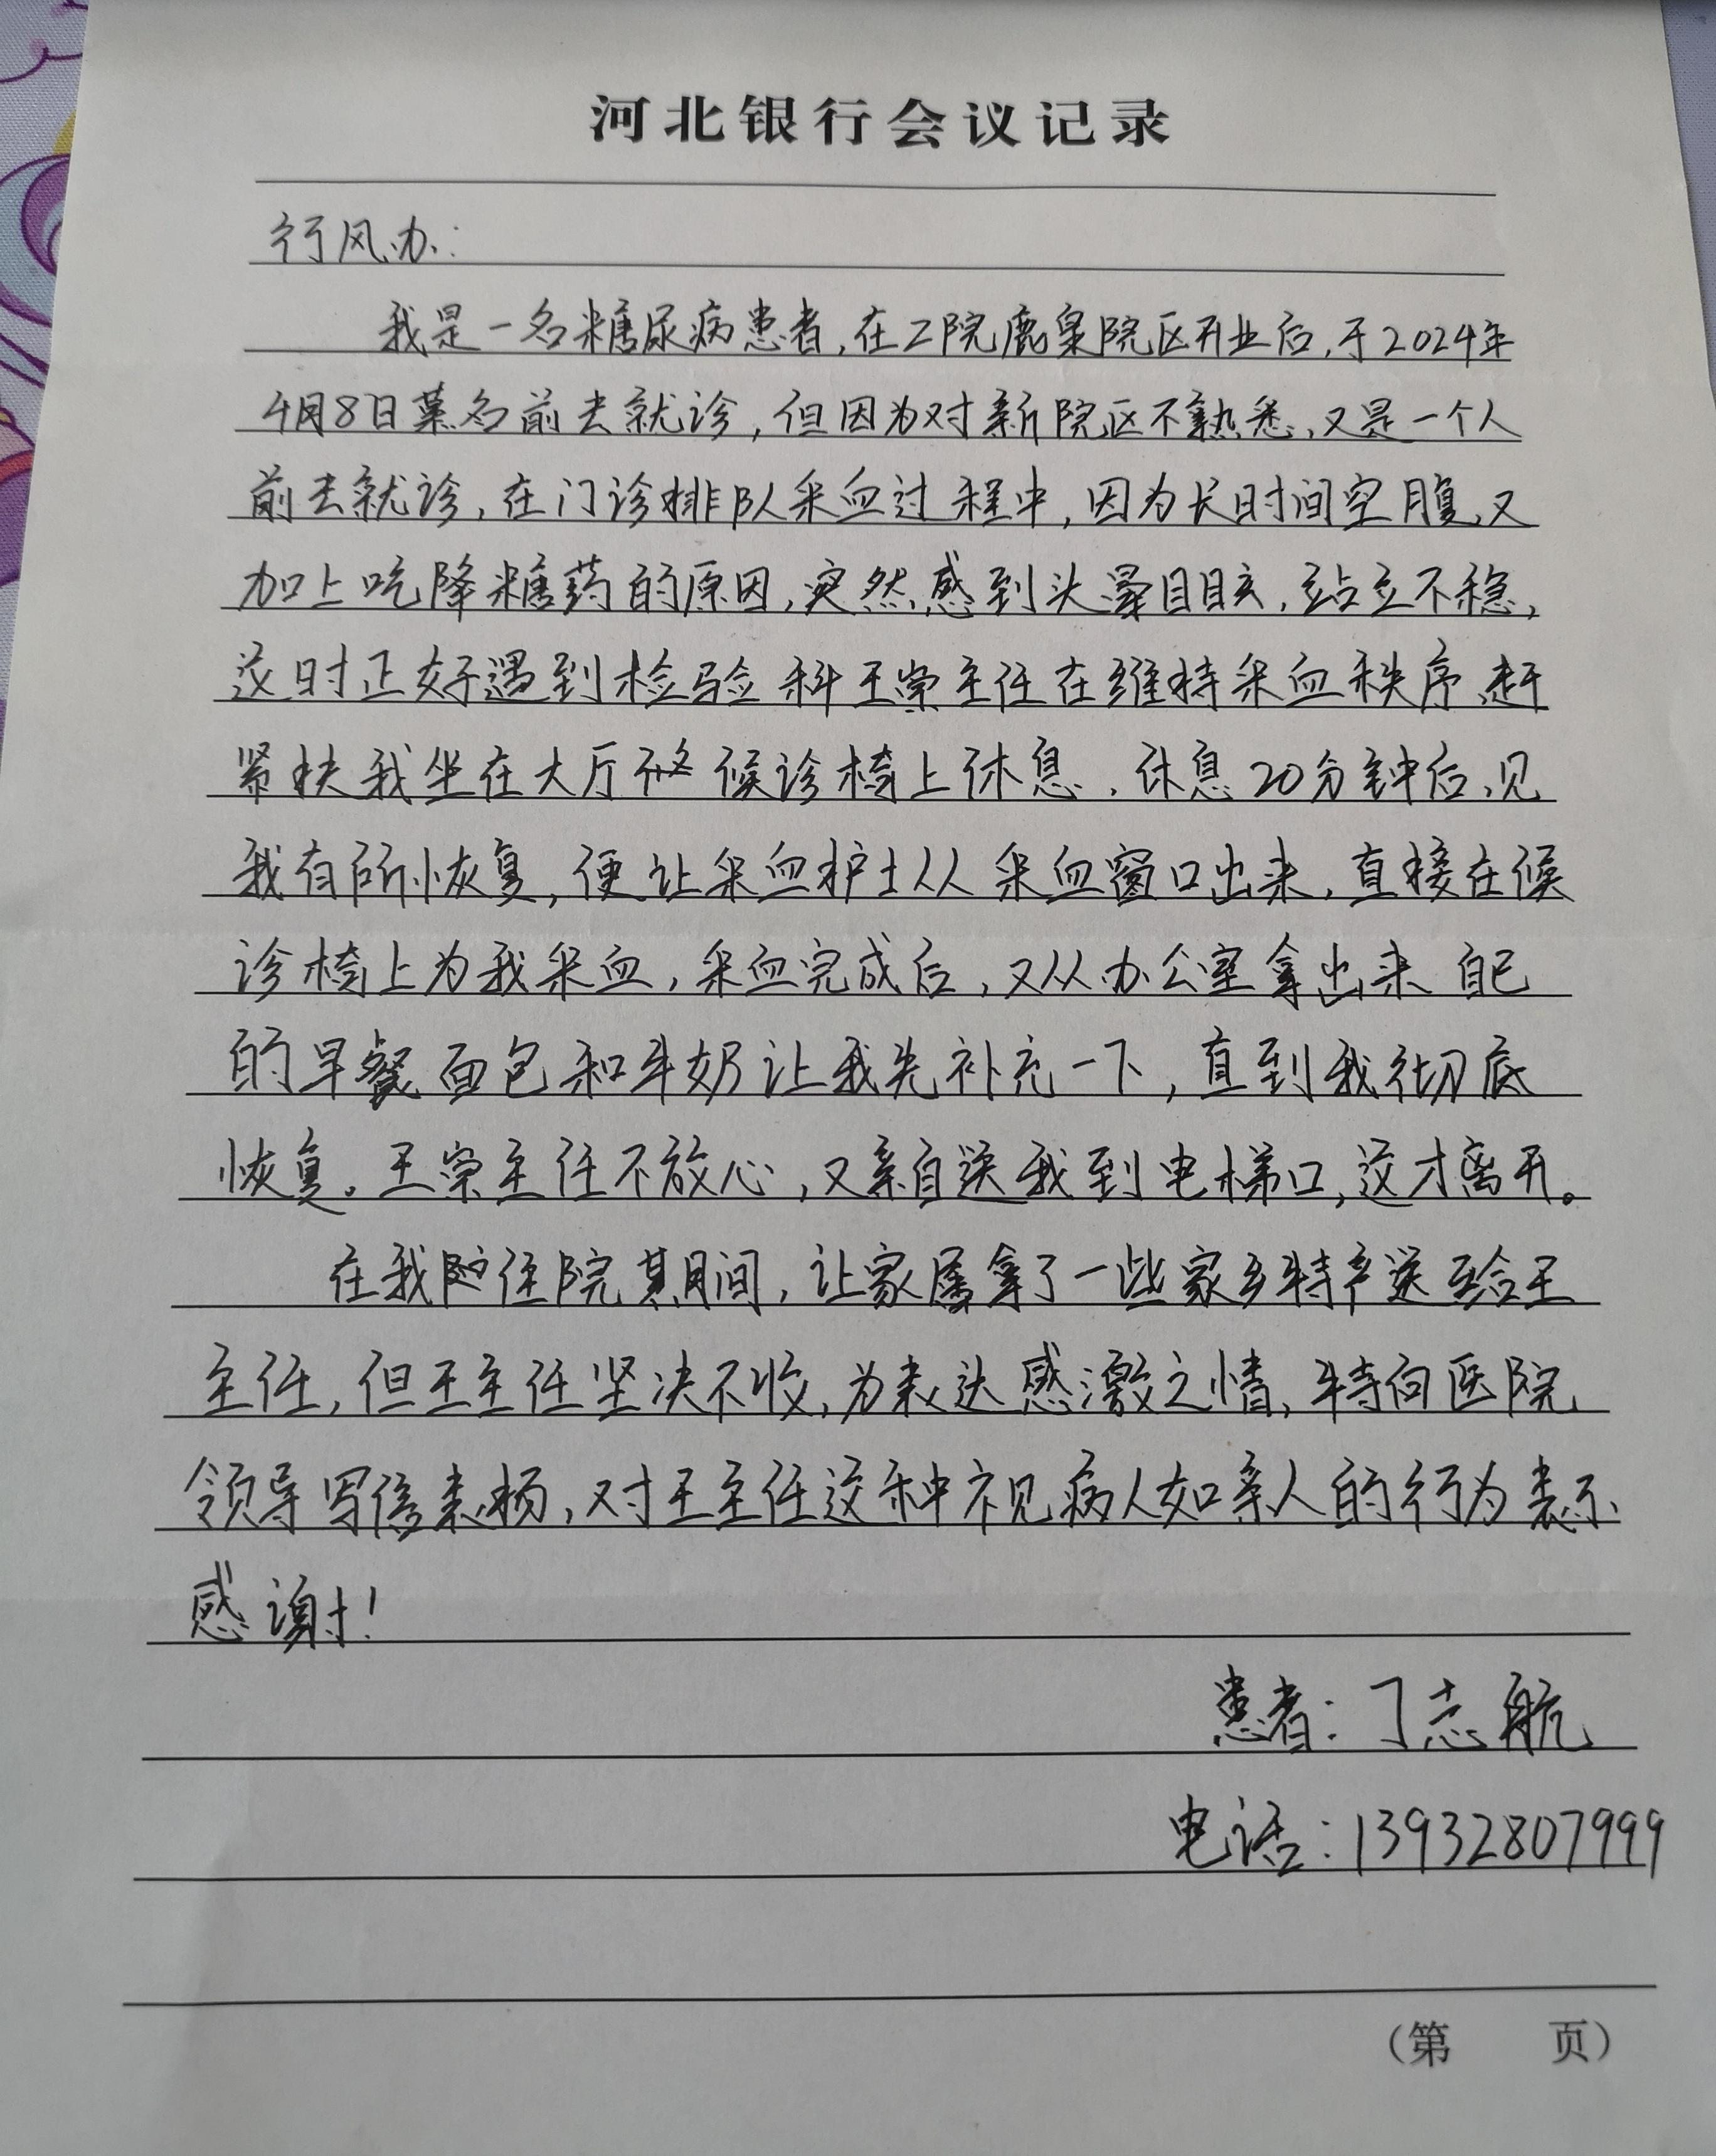 河北银行会议记录
行风办:
我是一名糖尿病患者,在二院鹿泉院区开业后,于2024年
4月8日慕名前去就诊,但因为对新院区不熟悉,又是一个人
前去就诊,在门诊排队采血过程中,因为长时间空腹,又
加上吃降糖药的原因,突然感到头晕目眩,站立不稳,
这时正好遇到检验科王崇主任在维持采血秩序,赶
紧扶我坐在大厅候诊椅上休息,休息20分钟后,见
我有所恢复,便让采血护士从采血窗口出来,直接在候
诊椅上为我采血,采血完成后,又从办公室拿出来自己
的早餐面包和牛奶让我先补充一下,直到我彻底
恢复。王崇主任不放心,又亲自送我到电梯口,这才离开。
在我住院期间,让家属拿了一些家乡特产送给王
主任,但王主任坚决不收,为表达感激之情,特向医院
领导写信表扬,对王主任这种视病人如亲人的行为表示
感谢!
患者:丁志航
电话:13932807999
(第 页)